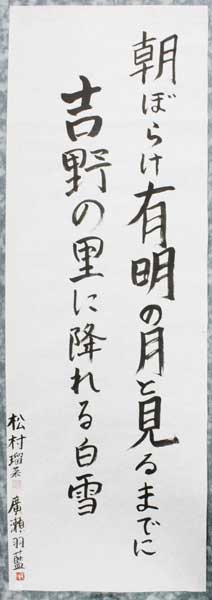 朝ぼらけ有明の月と見るまでに
吉野の里に降れる白雪
松村瑠
廣瀬羽藍